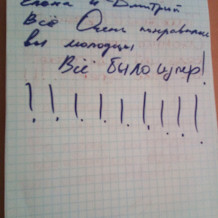 Елена и Дмитрий
Всё Очень понравилось
вы молодцы
Всё было супер!
! ! ! ! ! ! ! !